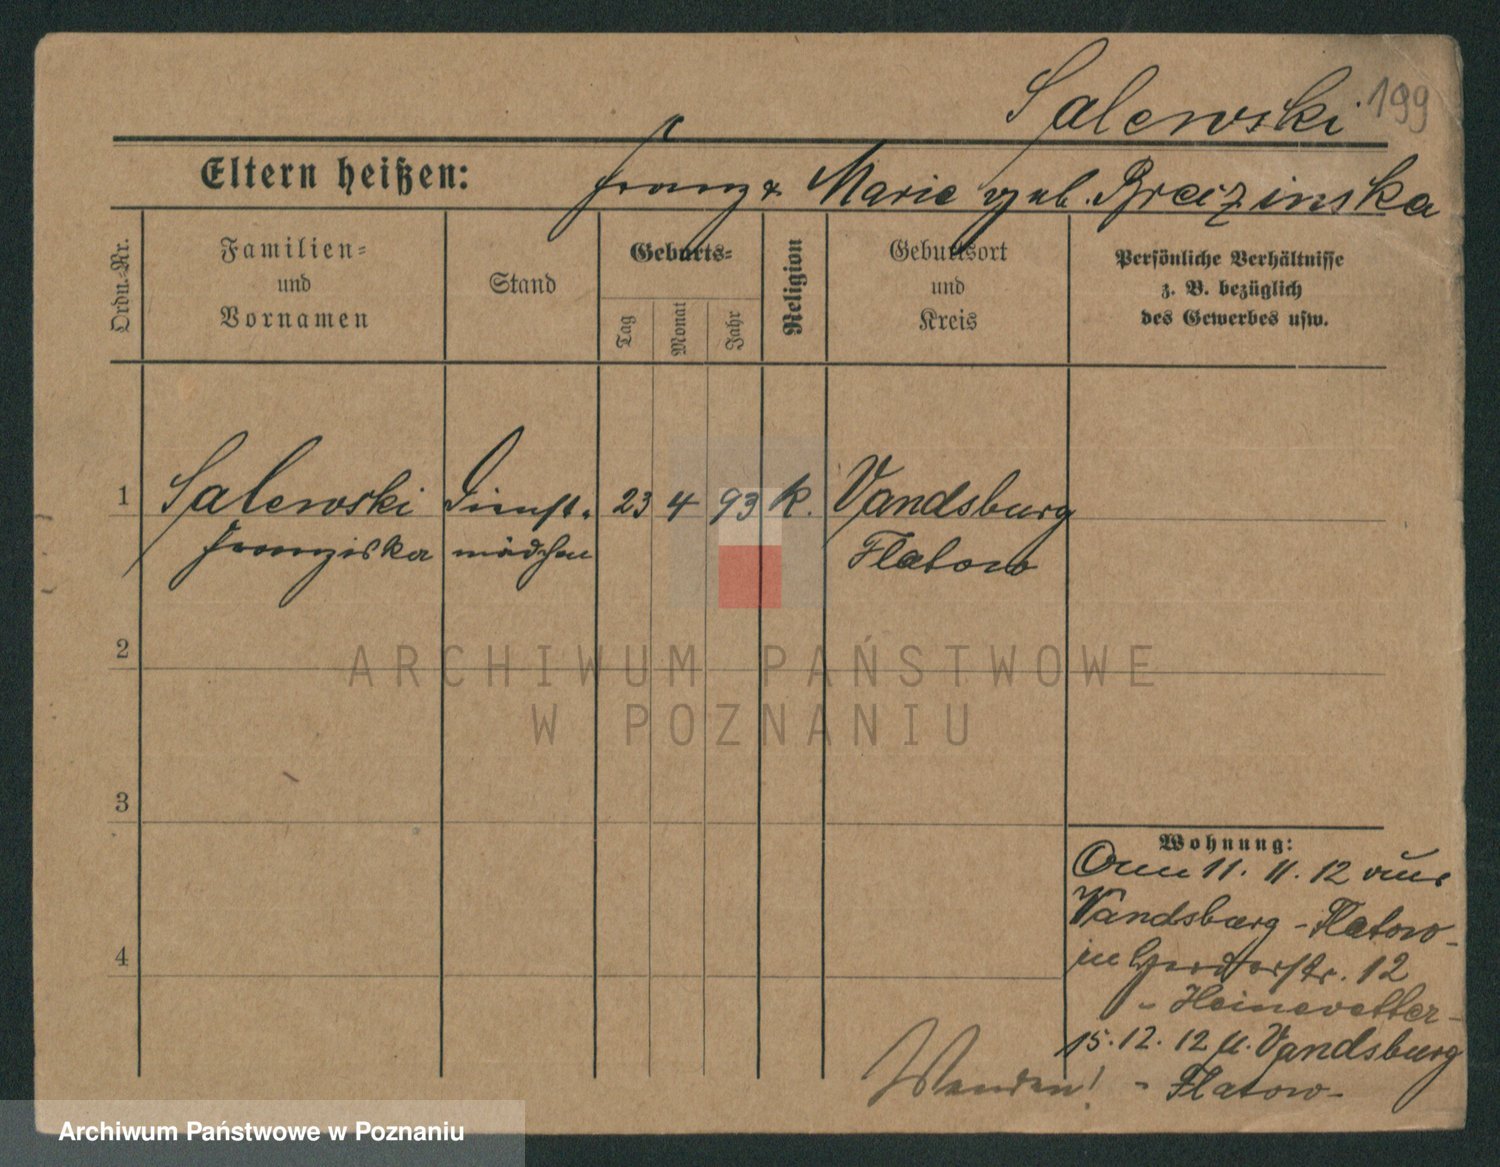 Salewski 199
Eltern heißen: Franz & Marie geb. Brzizinska
Ordn.-Nr.
Familien-
und
Vornamen
Stand
Geburts-
Tag
Monat
Jahr
Religion
Geburtsort
und
Kreis
Persönliche Verhältnisse
z. B. bezüglich
des Gewerbes usw.
1 Salewski Dienst- 23 4 93 k. Vandsburg
Franziska mädchen Flatow
2
ARCHIWUM PAŃSTWOWE
W POZNANIU
3
4
Wohnung:
Am 11. 11. 12 aus
Vandsburg - Flatow -
in Herderstr. 12
- Heinevetter -
15. 12. 12 n. Vandsburg
- Flatow -
Wenden!
Archiwum Państwowe w Poznaniu